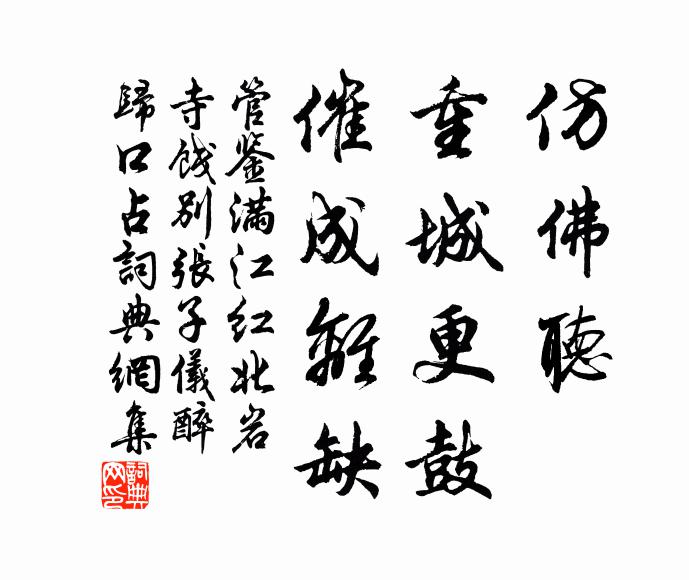 仿佛聽
重城更鼓
催成離缺
管鉴滿江红北岩
寺餞别張子儀醉
歸口占詞典網集
詞典网印